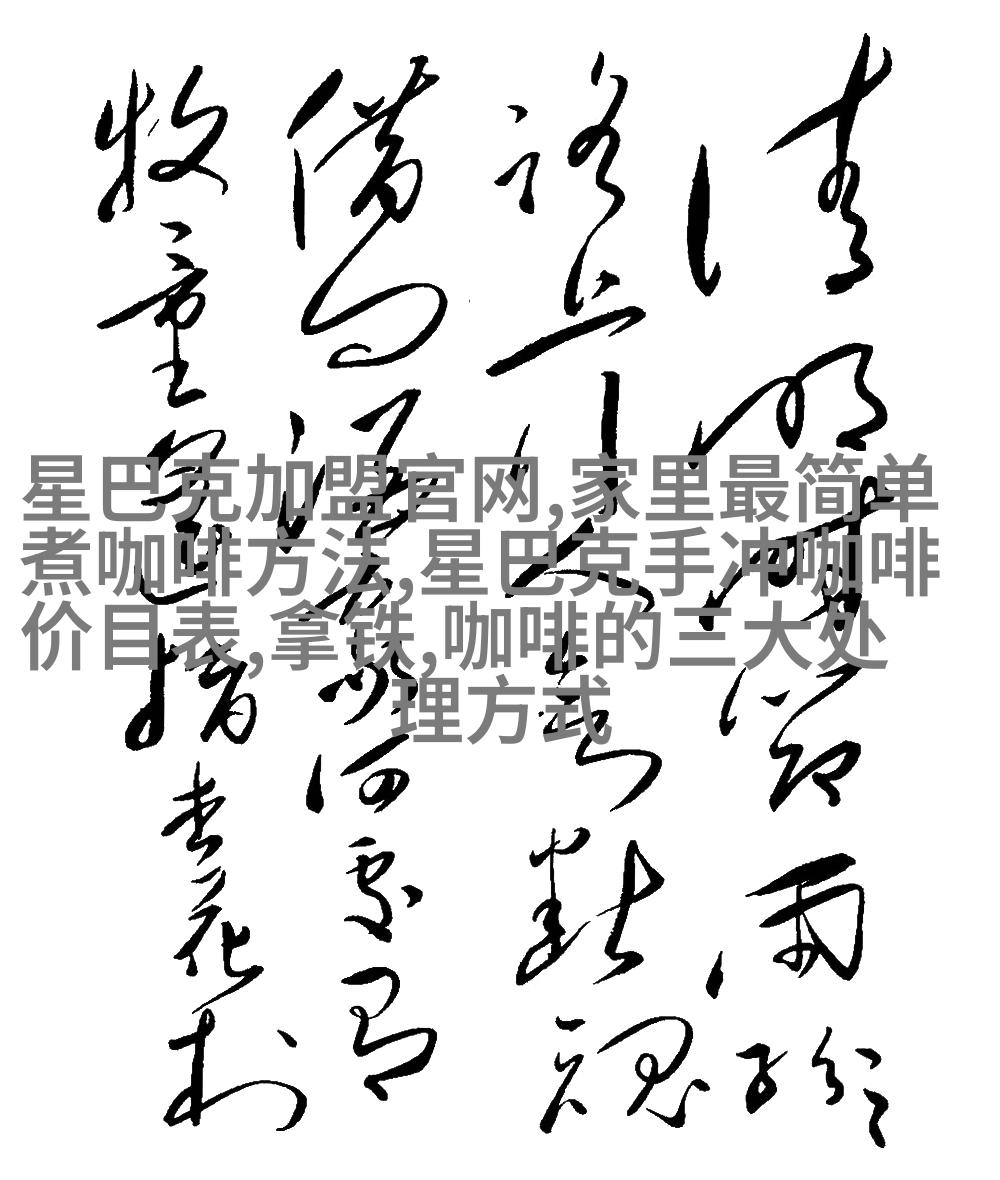 清明時節雨紛紛
路上行人欲斷魂
借問酒家何處有
牧童遙指杏花村
星巴克加盟官网,家里最简单
煮咖啡方法,星巴克手冲咖啡
价目表,拿铁,咖啡的三大处
理方式